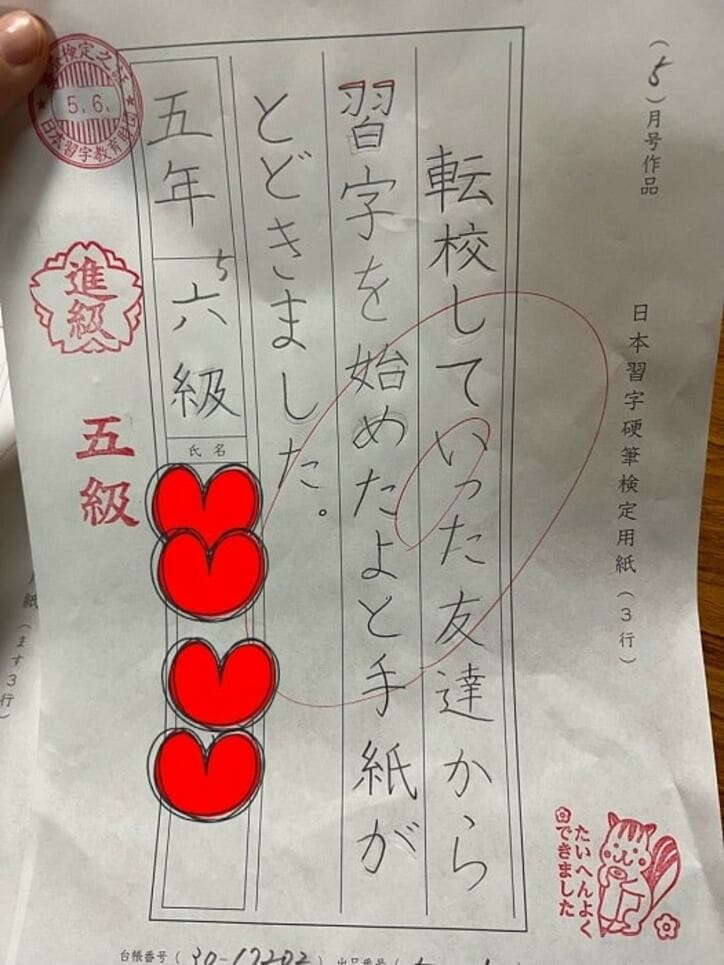 (5)月号作品
日本習字硬筆検定用紙(3行)
転校していった友達から
習字を始めたよと手紙が
とどきました。
五年
5
六級
氏名
検定之
5.6.
日本習字教育財団
進級
五級
たいへんよく
できました
台帳番号(30-17202)
紙(ます3行)